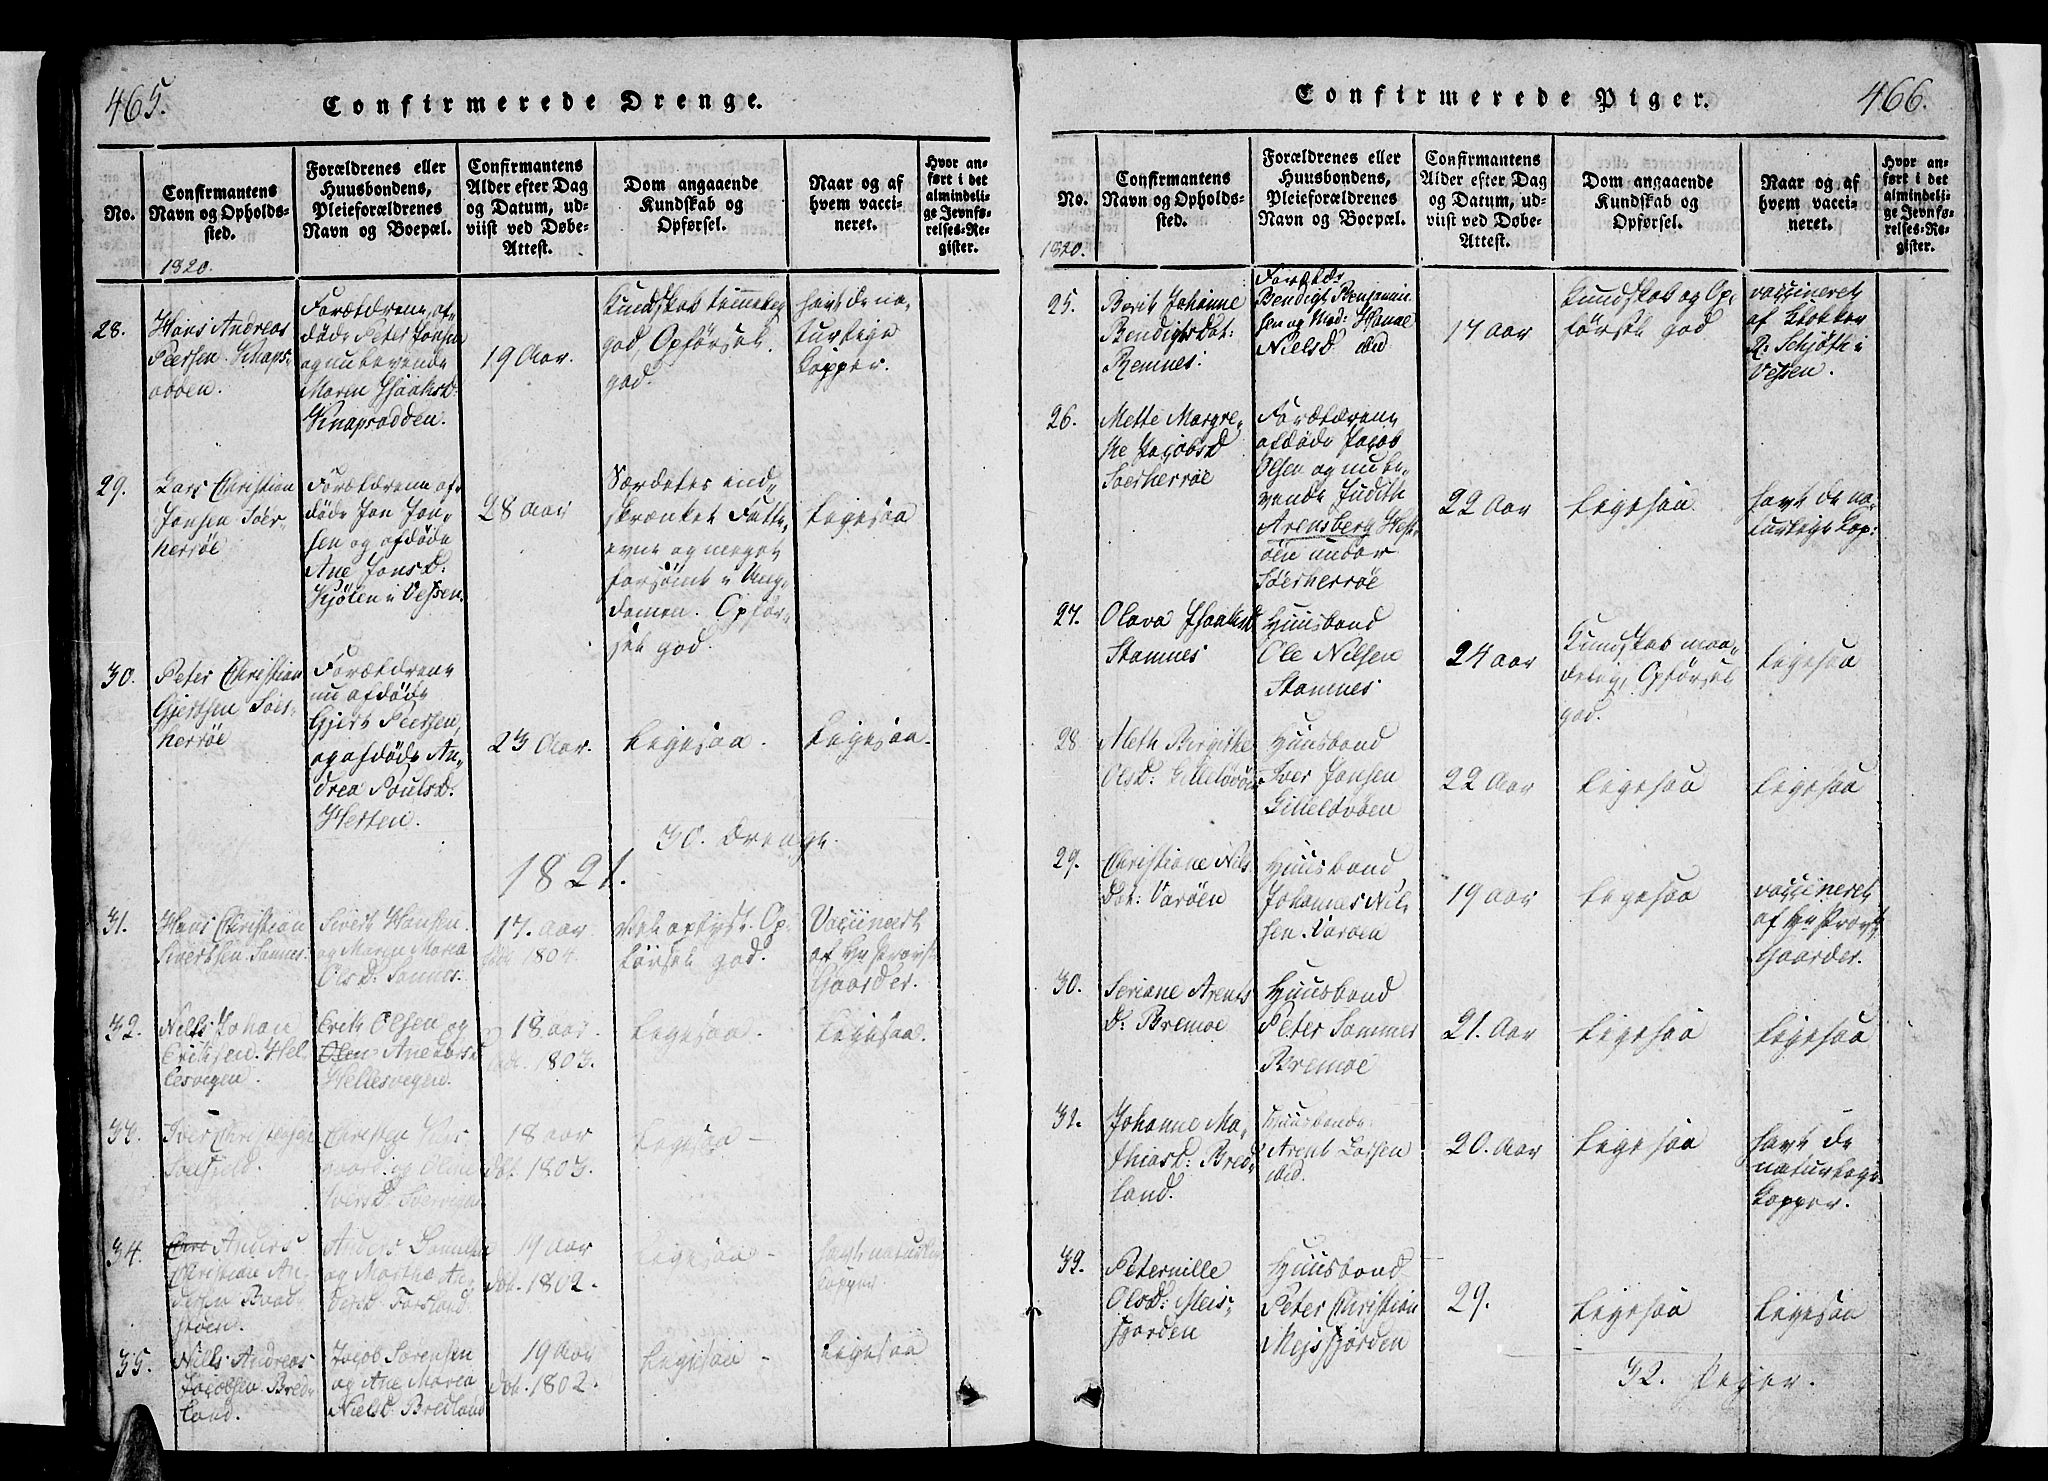 465.
Confirmerede Drenge.
No.
Confirmantens
Navn og Opholds-
sted.
Forældrenes eller
Huusbondens,
Pleieforældrenes
Navn og Boepæl.
Confirmantens
Alder efter Dag
og Datum, ud-
viist ved Døbe-
Attest.
Dom angaaende
Kundskab og
Opførsel.
Naar og af
hvem vacci-
neret.
Hvor an-
ført i det
almindeli-
ge Jevnfø-
relses-Re-
gister.
1820.
28.
Hans Andreas
Peersen
Forældrene af-
døde Peter Jonsen
og nulevende
Maren Isaaksd:
Knapradden.
19 Aar.
Kundskab temmelig
god, Opførsel
god.
havt de na-
turlige
Kopper.
29.
Lars Christian
Jonsen Søer-
herrøe
Forældrene af-
døde Jon Jon-
sen og afdøde
Ane Jonsd:
Kjølen i Vefsen.
28 Aar
Særdeles ind-
skrænket Fatte-
evne og meget
forsømt i Ung-
dommen. Opfør-
sel god.
Ligesaa
30.
Peter Christian
Gjertsen Søer-
herrøe
Forældrene
nu afdøde
Gjert Peersen,
og afdøde An-
drea Poulsd:
Herten.
23 Aar.
Ligesaa.
Ligesaa.
30. Drenge.
1821.
31.
Hans Christian
Sivertsen Sannes.
Sivert Hansen
og Maren Maria
Olsd: Sannes.
17. aar
døb. 1804.
Vel oplyst. Op-
førsel god.
Vaccineret
af Hr Provst
Gaarder.
32.
Nills Johan
Eriksen. Hel-
lesvigen.
Erik Olsen og
Olen Ane Larsd
Hellesvegen.
18 aar
døb. 1803.
Ligesaa.
Ligesaa.
33.
Iver Christensen
Christen Ivers
og Oline
Iversd.
18 aar
døb. 1803.
Ligesaa –
34.
Anders
Christian An-
dersen
Anders
og Martha An-
dersd. Forsland.
19 aar
døb. 1802.
Ligesaa –
havt naturlige
Kopper.
35.
Nills Andreas
Jacobsen Bred-
land.
Jacob Sørensen
og Ane Maria
Nielsd Bredland
19 Aar
døb. 1802.
Ligesaa –
Ligesaa
Confirmerede Piger.
466.
No.
Confirmantens
Navn og Opholds-
sted.
Forældrenes eller
Huusbondens,
Pleieforældrenes
Navn og Boepæl.
Confirmantens
Alder efter Dag
og Datum, ud-
viist ved Døbe-
Attest.
Dom angaaende
Kundskab og
Opførsel.
Naar og af
hvem vacci-
neret.
Hvor an-
ført i det
almindeli-
ge Jevnfø-
relses-Re-
gister.
1820.
25.
Berit Johanne
Bendigtsdat:
Remnes.
Forældr
Bendigt Benjamin-
sen og Mad: Hanne
Nielsd
17 aar
Kundskab og Op-
førsel god
vaccineret
af Klokker
R. Schjøth i
Vefsen.
26.
Mette Margre-
the Jacobsd
Søerherrøe
Forældrene
afdøde Jacob
Olsen og nule-
vende Judith
Arensberg
under
Søerherrøe
22 Aar
Ligesaa
havt de na-
turlige Kop:
27.
Olava Isaaksd
Stamnes
Huusbond
Ole Nilsen
Stamnes
24 aar
Kundskab maa-
delig, Opførsel
god.
Ligesaa
28
Meth Birgithe
Olsd:
Huusbond
Iver Jonsen
22 Aar
Ligesaa
Ligesaa
29.
Christiane Nils
dat: Varøen
Huusbond,
Johannes Nil-
sen. Varøen
19 aar
Ligesaa
vaccineret
af Hr Provst
Gaarder.
30.
Seriane Arents
D: Bremoe
Huusbond
Peter Sommer
Bremoe
21. Aar
Ligesaa
Ligesaa
31.
Johanne Ma-
thiasd: Bred-
land.
Huusbonde
Arent Larsen
ibid.
20. Aar
Ligesaa
havt de
naturlige
Kopper.
32.
Peternille
Olsd: Meis-
fjorden
Huusbond
Peter Christian
Mejsfjorden
29.
Ligesaa
Ligesaa
32. Piger.